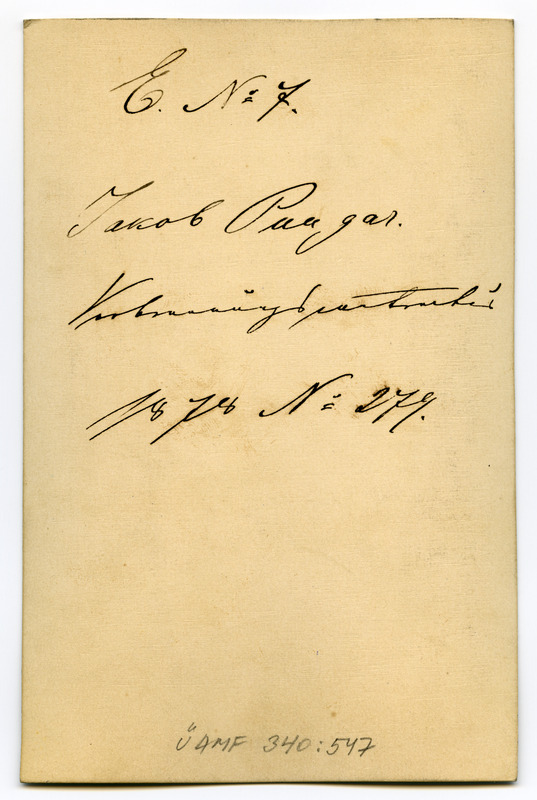 E. № 7.
Jakob Pungar.
1878 № 279.
ÜAMF 340:547